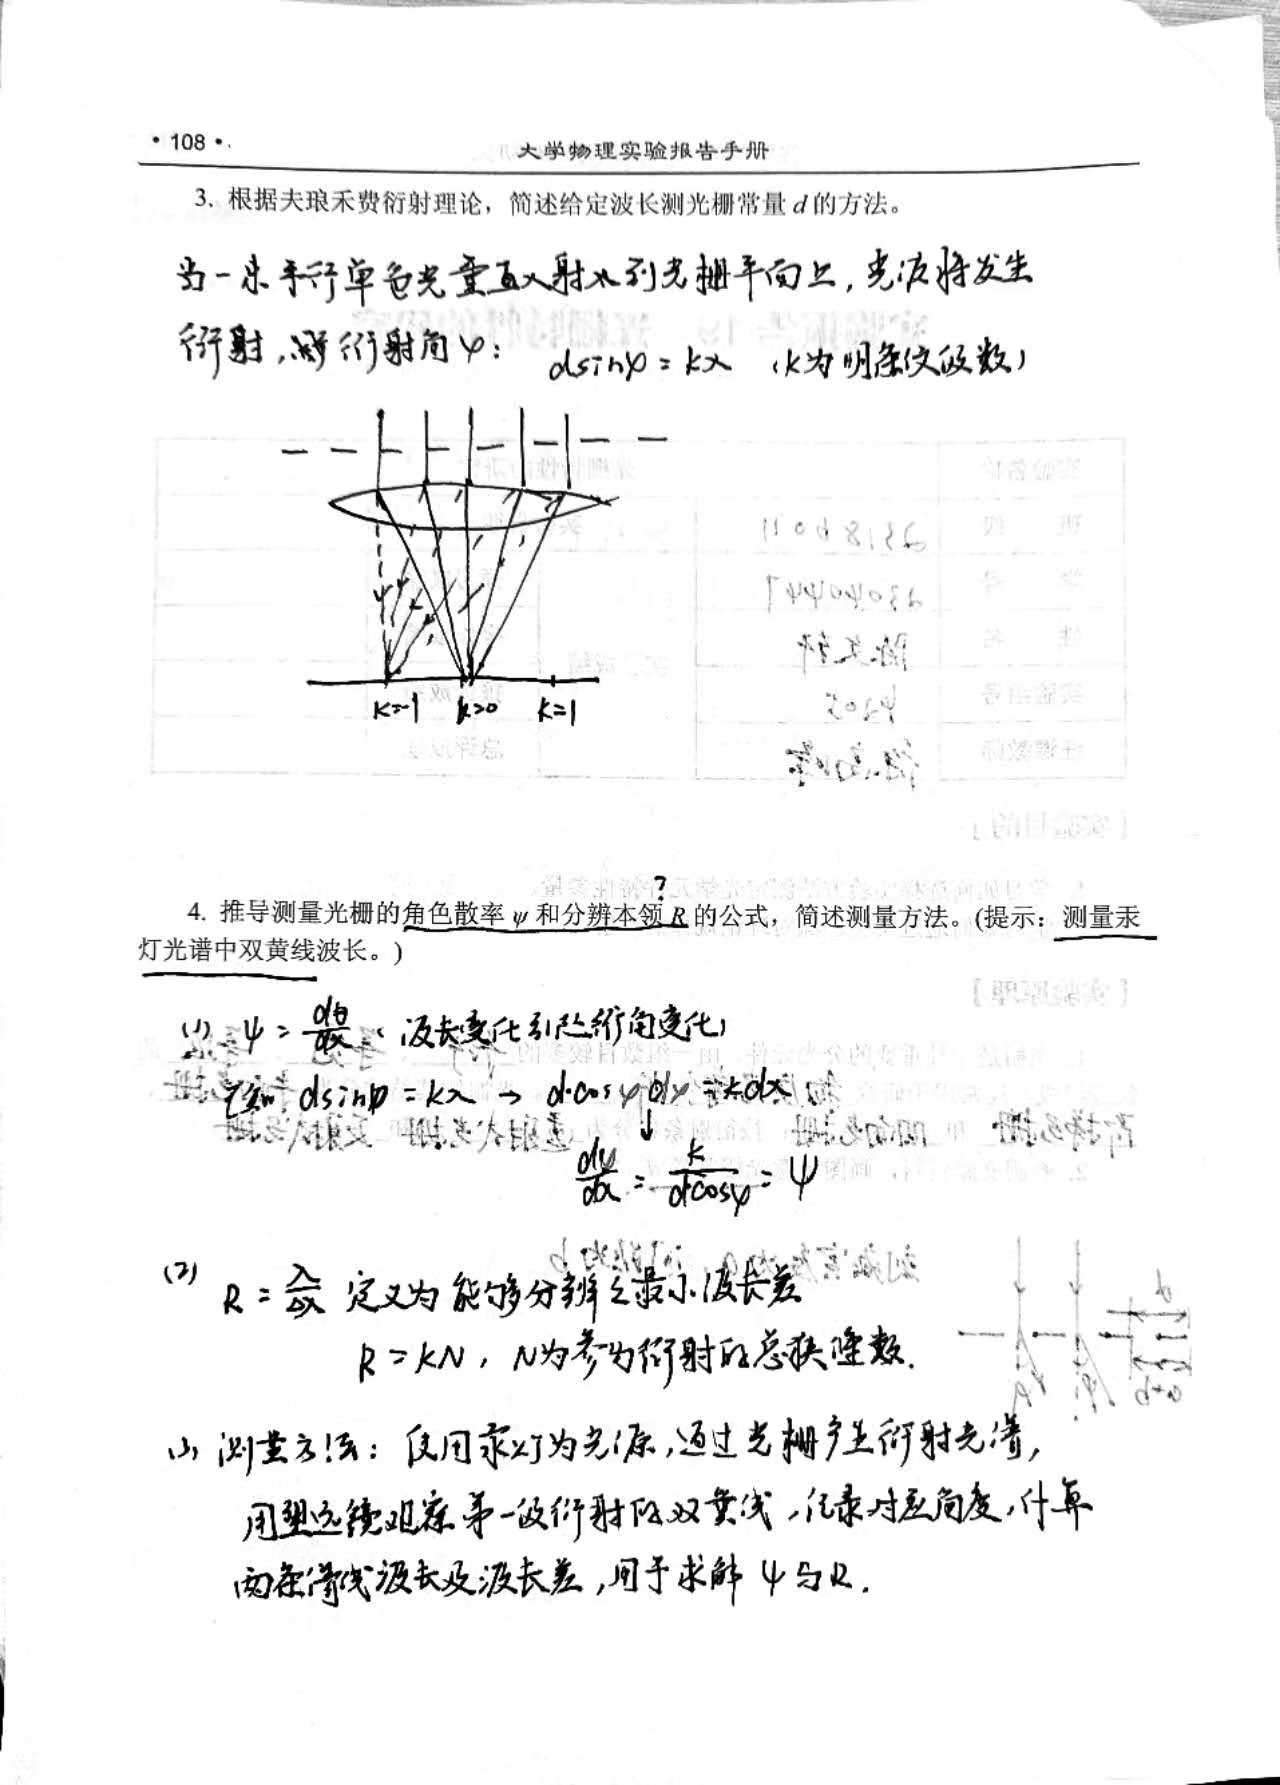 ·108·
大学物理实验报告手册
3. 根据夫琅禾费衍射理论，简述给定波长测光栅常量 d 的方法。
当一束平行单色光垂直入射到光栅平面上，光波将发生
衍射，衍射角φ： dsinφ = kλ （k为明条纹级数）
k=-1 k=0 k=1
?
4. 推导测量光栅的角色散率 ψ 和分辨本领 R 的公式，简述测量方法。(提示：测量汞
灯光谱中双黄线波长。)
(1) ψ = dθ/dλ （波长变化引起衍角变化）
已知 dsinφ = kλ → d·cosφ dφ = kdλ
dφ/dλ = k/dcosφ = ψ
(2) R = λ/Δλ 定义为能够分辨之最小波长差
R = kN，N为参与衍射的总狭缝数.
(3) 测量方法：使用汞灯为光源，通过光栅产生衍射光谱，
用望远镜观察第一级衍射的双黄线，记录对应角度，计算
两条谱线波长及波长差，用于求解 ψ与R.